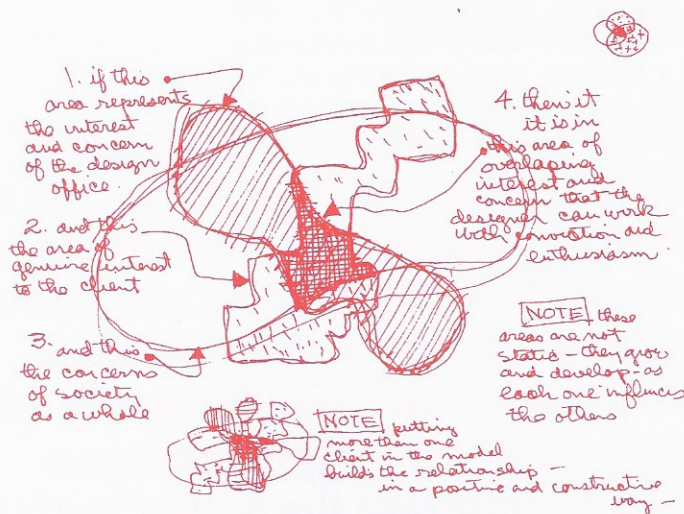 1. if this
area represents
the interest
and concern
of the design
office.
2. and this
the area of
genuine interest
to the client
3. and this
the concerns
of society
as a whole
4. then it
it is in
this area of
overlaping
interest and
concern that the
designer can work
with conviction and
enthusiasm
NOTE these
areas are not
static – they grow
and develop – as
each one influences
the others
NOTE putting
more than one
client in the model
builds the relationship –
in a positive and constructive
way –